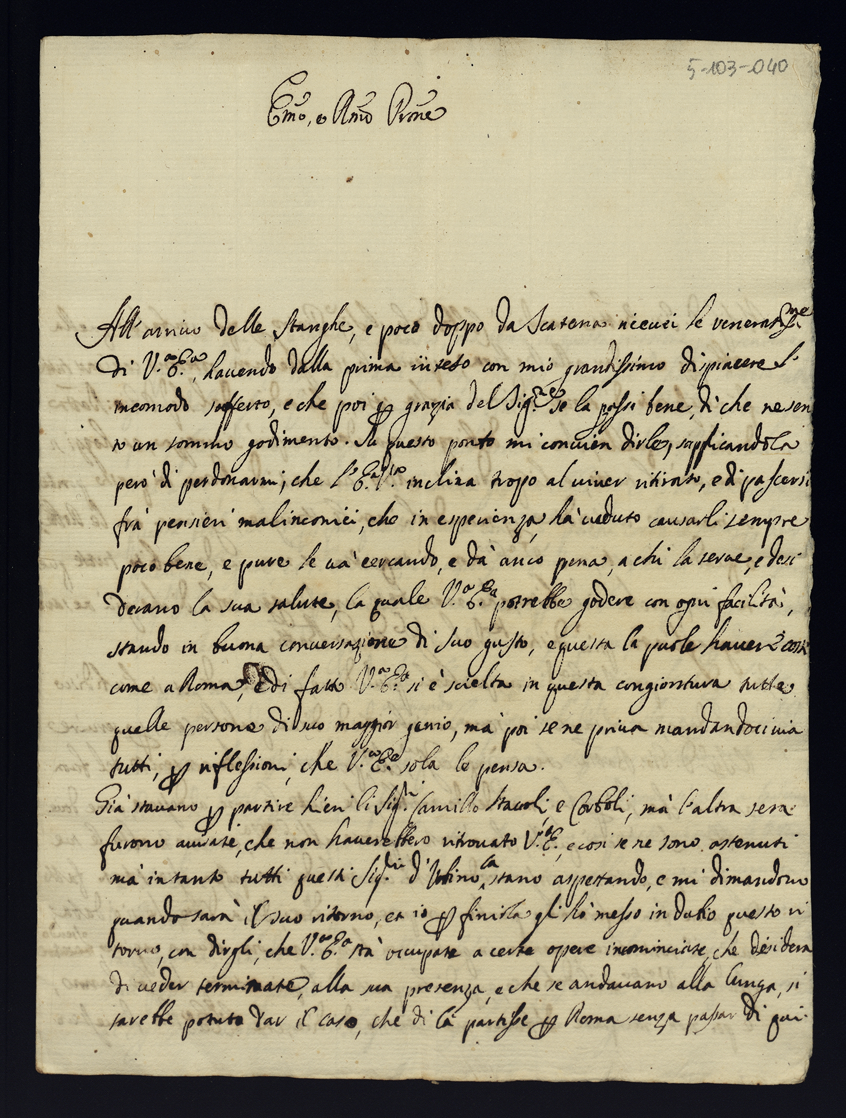 5-103-040
Em̃o, e Rm̃o Prñe
All' arrivo delle Stanghe, e poco doppo da Scatena ricevei le venerat.me
di V.ra E.za, havendo dalla prima inteso con mio grandissimo dispiacere l'
incomodo sofferto, e che poi p grazia del Sig.re se la passi bene, di che ne sen
to un sommo godimento. Su questo ponto mi convien dirle, supplicandola
però di perdonarmi, che l'E.za V.ra inclina tropo al viver ritirato, e di pascersi
frà pensieri malinconici, che in esperienza, hà veduto causarli sempre
poco bene, e pure le và cercando, e dà anco pena, a chi la serve, e desi
derano la sua salute, la quale V.ra E.za potrebbe godere con ogni facilità,
stando in buona conversazione di suo gusto, e questa la puole haver costi
come a Roma, e di fatto V.ra E.za si è scielta in questa congiontura tutte
quelle persone di suo maggior genio, mà poi se ne priva mandandoci via
tutti, p riflessioni, che V.ra E.za sola le pensa.
Già stavano p partire hieri li Sig.ri Camillo Stavoli, e Corboli, mà l'altra sera
furono avisati, che non haverebbero ritrovato V.ra E., e così se ne sono astenuti
mà intanto tutti questi Sig.ri d'Urbino la stano aspettando, e mi dimandono
quando sarà il suo ritorno, et io p finirla gli hò messo in dubio questo ri
torno, con dirgli, che V.ra E.za stà occupata a certe opere incominciate, che desidera
di veder terminate, alla sua presenza, e che se andavano alla lunga, si
sarebbe potuto dar il caso, che di là partisse p Roma senza passar di qui